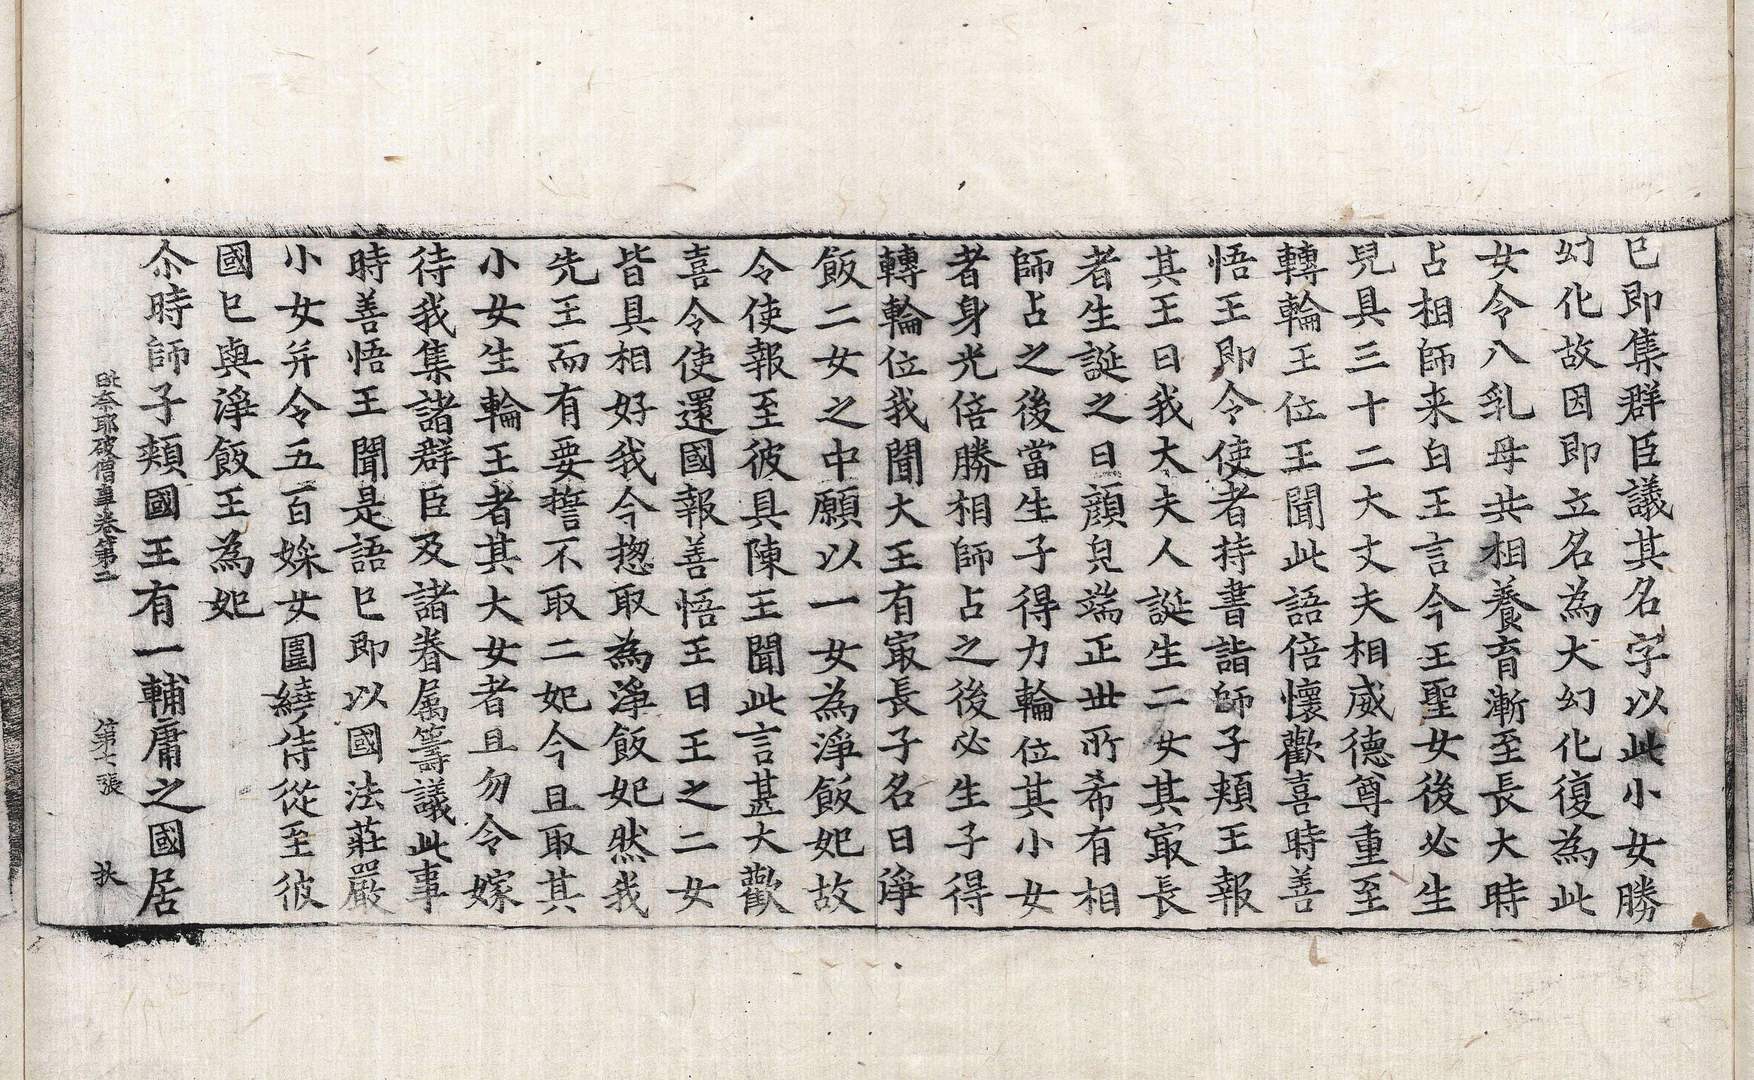 已即集群臣議其名字以此小女勝
幻化故因即立名為大幻化復為此
女令八乳母共相養育漸至長大時
占相師来白王言今王聖女後必生
皃具三十二大丈夫相威德尊重至
轉輪王位王聞此語倍懷歡喜時善
悟王即令使者持書詣師子頬王報
其王曰我大夫人誕生二女其㝡長
者生誕之日顔皃端正丗所希有相
師占之後當生子得力輪位其小女
者身光倍勝相師占之後必生子得
轉輪位我聞大王有㝡長子名曰淨
飯二女之中願以一女為淨飯妃故
令使報至彼具陳王聞此言甚大歡
喜令使還國報善悟王曰王之二女
皆具相好我今揔取為淨飯妃然我
先王而有要誓不取二妃今且取其
小女生輪王者其大女者且勿令嫁
待我集諸群臣及諸眷属籌議此事
時善悟王聞是語已即以國法莊嚴
小女并令五百婇女圍繞侍從至彼
國已與淨飯王為妃
尒時師子頬國王有一輔庸之國居
毗奈耶破僧事卷第二 第七張 扶